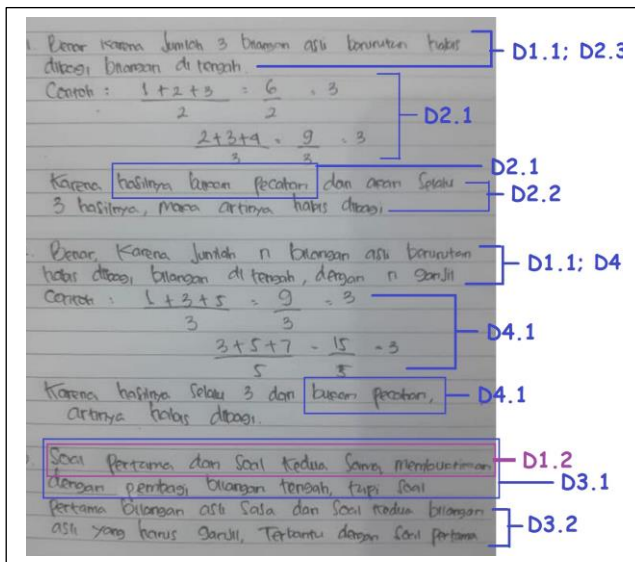 1. Benar karena Jumlah 3 bilangan asli berurutan habis
dibagi bilangan di tengah.
D1.1; D2.3
Contoh : 1+2+3 / 2 = 6 / 2 = 3
2+3+4 / 3 = 9 / 3 = 3
D2.1
Karena hasilnya bukan pecahan dan akan selalu
D2.1
3 hasilnya, maka artinya habis dibagi.
D2.2
Benar, Karena Jumlah n bilangan asli berurutan
habis dibagi bilangan di tengah, dengan n ganjil
D1.1; D4
Contoh : 1+3+5 / 3 = 9 / 3 = 3
3+5+7 / 5 = 15 / 5 = 3
D4.1
Karena hasilnya selalu 3 dan bukan pecahan,
D4.1
artinya habis dibagi.
Soal pertama dan Soal kedua Sama, membuktikan
D1.2
dengan pembagi bilangan tengah, tapi soal
D3.1
pertama bilangan asli saja dan Soal kedua bilangan
asli yang harus ganjil, Terbantu dengan soal pertama
D3.2